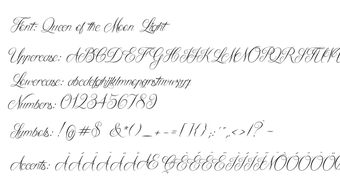 Font: Queen of the Moon Light
Uppercase: ABCDEFGHIJKLMNOPQRSTUVW
Lowercase: abcdefghijklmnopqrstuvwxyz
Numbers: 0123456789
Symbols: !@#$ &*()_+-=[]{};:'",.<>/?~
Accents: ÀÁÂÃÄÅÆÇÈÉÊËÌÍÎÏÑÒÓÔÕÖ